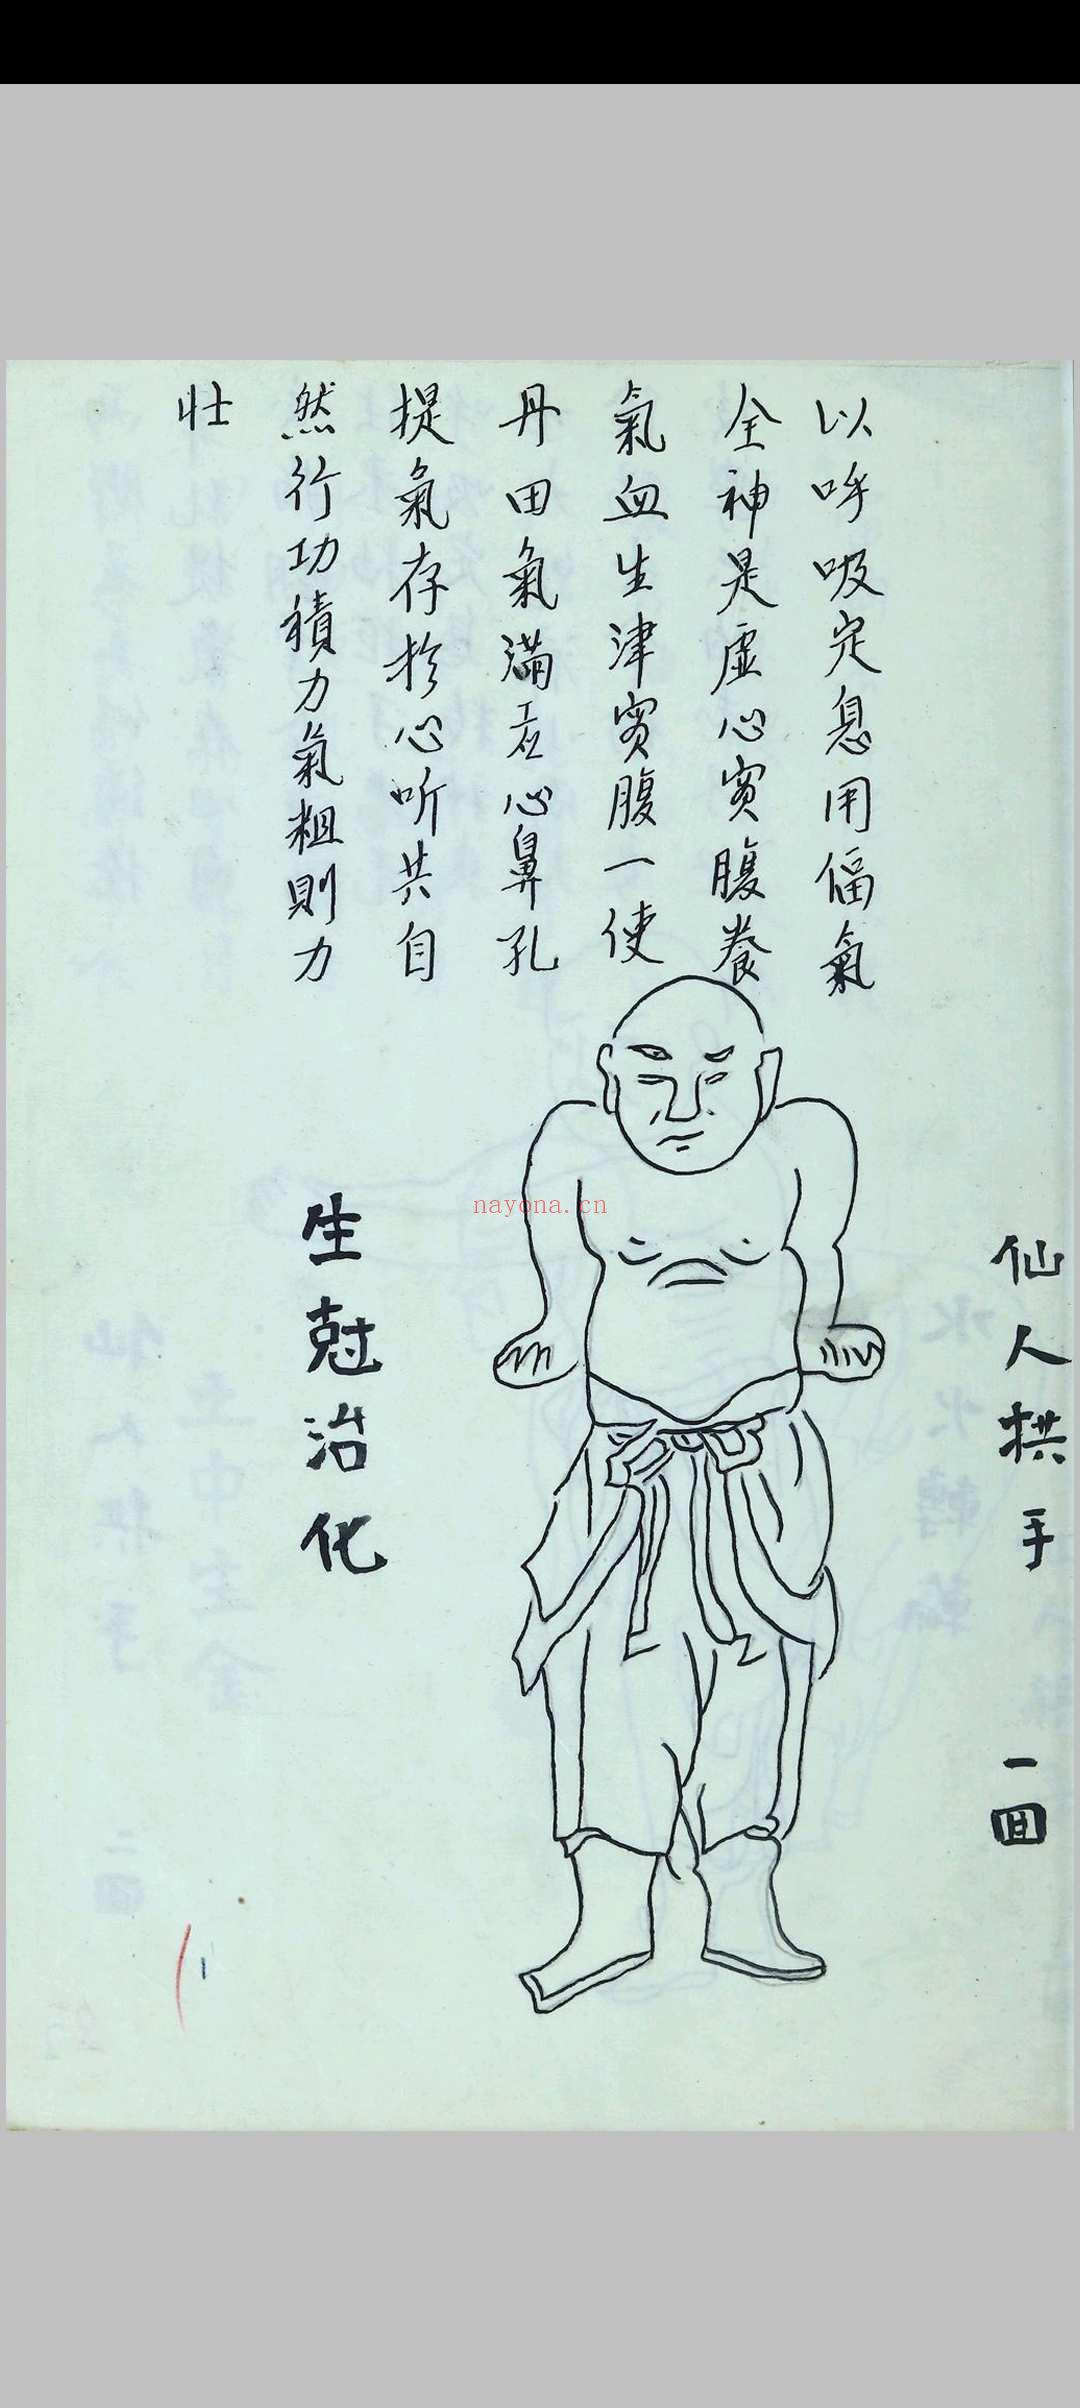 仙人拱手 一囬
以呼吸定息用偪氣
全神是虛心實腹養
氣血生津實腹一使
丹田氣滿心鼻孔
提氣存於心听共自
然行功積力氣粗則力
壮
生尅治化
nayona.cn